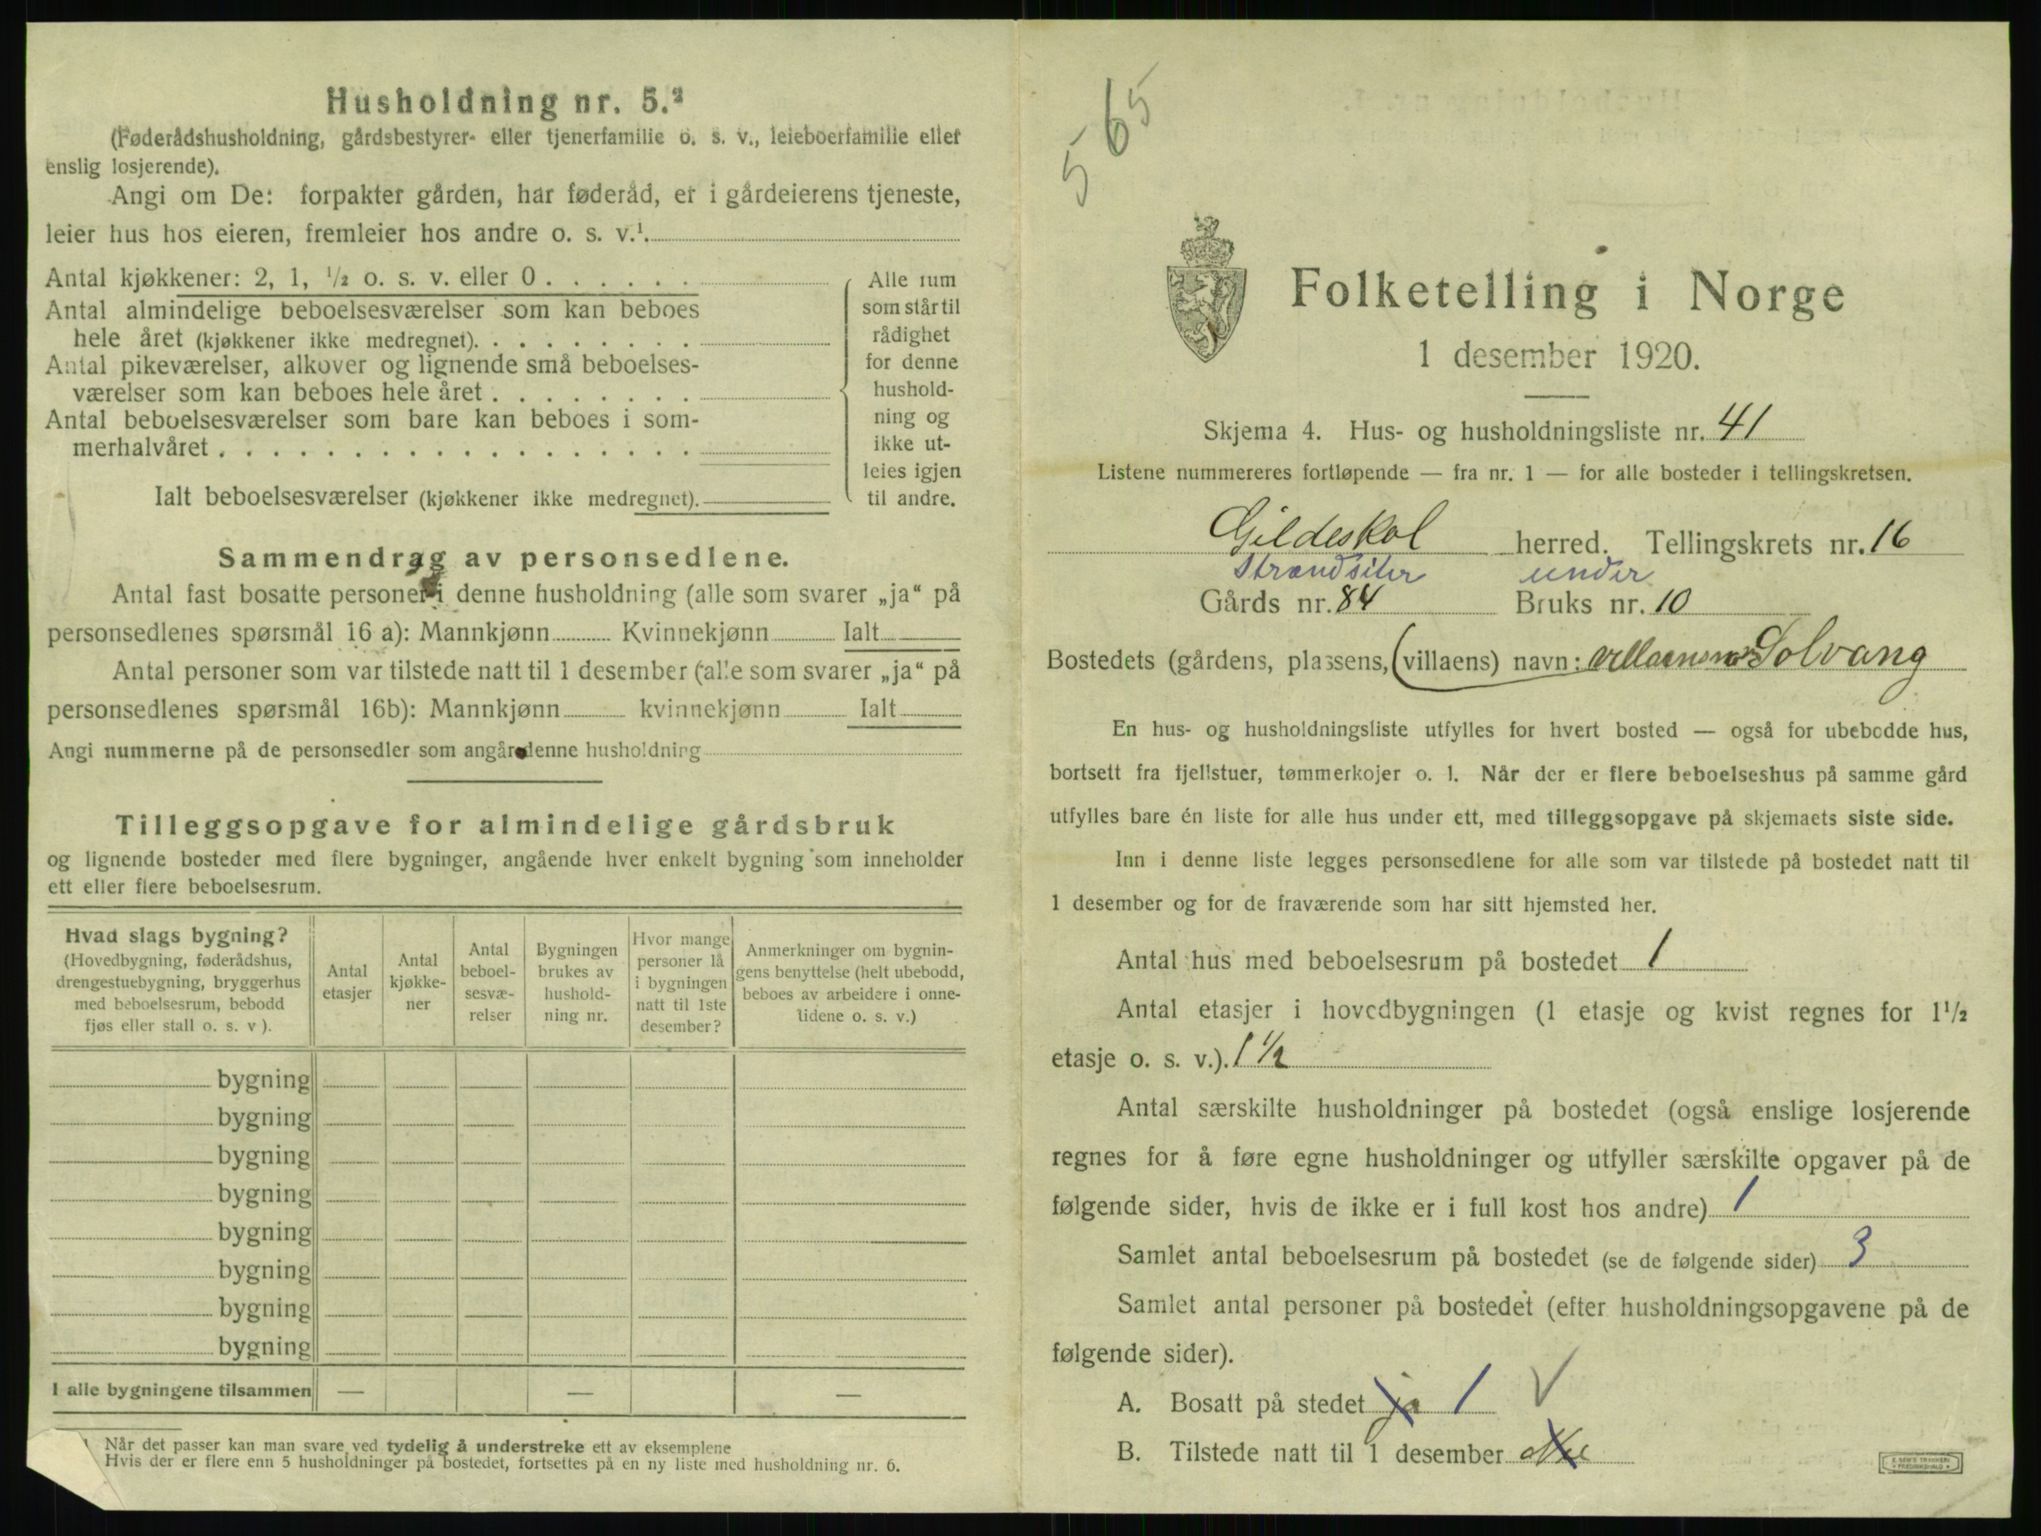 Husholdning nr. 5.²
(Føderådshusholdning, gårdsbestyrer- eller tjenerfamilie o. s. v., leieboerfamilie eller
enslig losjerende).
Angi om De: forpakter gården, har føderåd, er i gårdeierens tjeneste,
leier hus hos eieren, fremleier hos andre o. s. v.¹
Antal kjøkkener: 2, 1, ½ o. s. v. eller 0 . . . . . .
Antal almindelige beboelsesværelser som kan beboes
hele året (kjøkkener ikke medregnet). . . . . . . . .
Antal pikeværelser, alkover og lignende små beboelses-
værelser som kan beboes hele året . . . . . . . .
Antal beboelsesværelser som bare kan beboes i som-
merhalvåret . . . . . . . . . . . . . . . . . .
Ialt beboelsesværelser (kjøkkener ikke medregnet).
Alle rum
som står til
rådighet
for denne
hushold-
ning og
ikke ut-
leies igjen
til andre.
Sammendrag av personsedlene.
Antal fast bosatte personer i denne husholdning (alle som svarer „ja“ på
personsedlenes spørsmål 16 a): Mannkjønn Kvinnekjønn Ialt
Antal personer som var tilstede natt til 1 desember (alle som svarer „ja“ på
personsedlenes spørsmål 16b): Mannkjønn kvinnekjønn Ialt
Angi nummerne på de personsedler som angår denne husholdning
Tilleggsopgave for almindelige gårdsbruk
og lignende bosteder med flere bygninger, angående hver enkelt bygning som inneholder
ett eller flere beboelsesrum.
Hvad slags bygning?
(Hovedbygning, føderådshus,
drengestuebygning, bryggerhus
med beboelsesrum, bebodd
fjøs eller stall o. s. v ).
Antal
etasjer
Antal
kjøkke-
ner
Antal
beboel-
sesvæ-
relser
Bygningen
brukes av
hushold-
ning nr.
Hvor mange
personer lå
i bygningen
natt til 1ste
desember?
Anmerkninger om bygnin-
gens benyttelse (helt ubebodd,
beboes av arbeidere i onne-
tidene o. s. v.)
bygning
bygning
bygning
bygning
bygning
bygning
bygning
bygning
I alle bygningene tilsammen — — —
Når det passer kan man svare ved tydelig å understreke ett av eksemplene
Hvis der er flere enn 5 husholdninger på bostedet, fortsettes på en ny liste med husholdning nr. 6.
565
Folketelling i Norge
1 desember 1920.
Skjema 4. Hus- og husholdningsliste nr. 41
Listene nummereres fortløpende — fra nr. 1 — for alle bosteder i tellingskretsen.
Gildeskal herred. Tellingskrets nr. 16
Strandsiter under
Gårds nr. 84 Bruks nr. 10
Bostedets (gårdens, plassens, (villaens) navn: Solvang
En hus- og husholdningsliste utfylles for hvert bosted — også for ubebodde hus,
bortsett fra fjellstuer, tømmerkojer o. l. Når der er flere beboelseshus på samme gård
utfylles bare én liste for alle hus under ett, med tilleggsopgave på skjemaets siste side.
Inn i denne liste legges personsedlene for alle som var tilstede på bostedet natt til
1 desember og for de fraværende som har sitt hjemsted her.
Antal hus med beboelsesrum på bostedet 1
Antal etasjer i hovedbygningen (1 etasje og kvist regnes for 1½
etasje o. s. v.). 1 ½
Antal særskilte husholdninger på bostedet (også enslige losjerende
regnes for å føre egne husholdninger og utfyller særskilte opgaver på de
følgende sider, hvis de ikke er i full kost hos andre) 1
Samlet antal beboelsesrum på bostedet (se de følgende sider) 3
Samlet antal personer på bostedet (efter husholdningsopgavene på de
følgende sider).
A. Bosatt på stedet ja 1 √
B. Tilstede natt til 1 desember